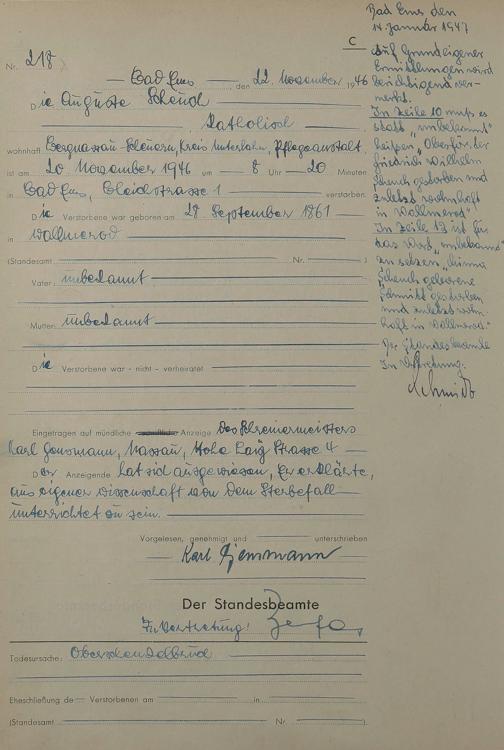 C
Nr. 218
Bad Ems, den 22. November 1946
Die Auguste Scheuch
Katholisch
wohnhaft Bergnassau-Scheuern, Kreis Unterlahn, Pflegeanstalt
ist am 20 November 1946 um 8 Uhr 20 Minuten
in Bad Ems, Bleichstrasse 1 verstorben.
Die Verstorbene war geboren am 29 September 1861
in Wallmerod
(Standesamt Nr. )
Vater: unbekannt
Mutter: unbekannt
Die Verstorbene war - nicht - verheiratet
Eingetragen auf mündliche schriftliche Anzeige des Schreinermeisters
Karl, Nassau, Hohe Strasse 4
Der Anzeigende hat sich ausgewiesen, Er erklärte,
aus eigener Wissenschaft von dem Sterbefall
unterrichtet zu sein.
Vorgelesen, genehmigt und unterschrieben
Karl
Der Standesbeamte
In Vertretung:
Todesursache: Oberschenkelbruch
Eheschließung de Verstorbenen am in
(Standesamt Nr. )
Bad Ems den
14 Januar 1947
Auf Grund eigener
Ermittlungen wird
berichtigend ver-
merkt.
In Zeile 10 muss es
statt "unbekannt"
heissen, Oberförster
Friedrich Wilhelm
Scheuch gestorben und
zuletzt wohnhaft
in Wallmerod"
In Zeile 13 ist für
das Wort "unbekannt"
zu setzen,
Scheuch geborene
Schmitt gestorben
und zuletzt wohn-
haft in Wallmerod."
Der Standesbeamte
In Vertretung:
Schmidt